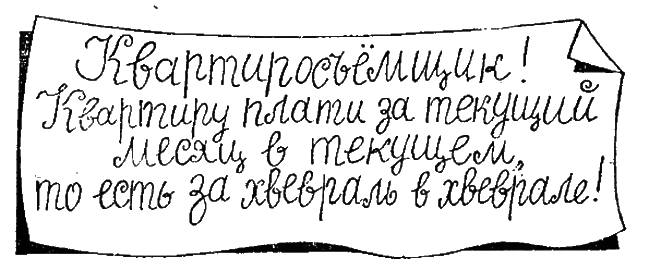 Квартиросъёмщик!
Квартиру плати за текущий
месяц в текущем,
то есть за хвевраль в хвеврале!